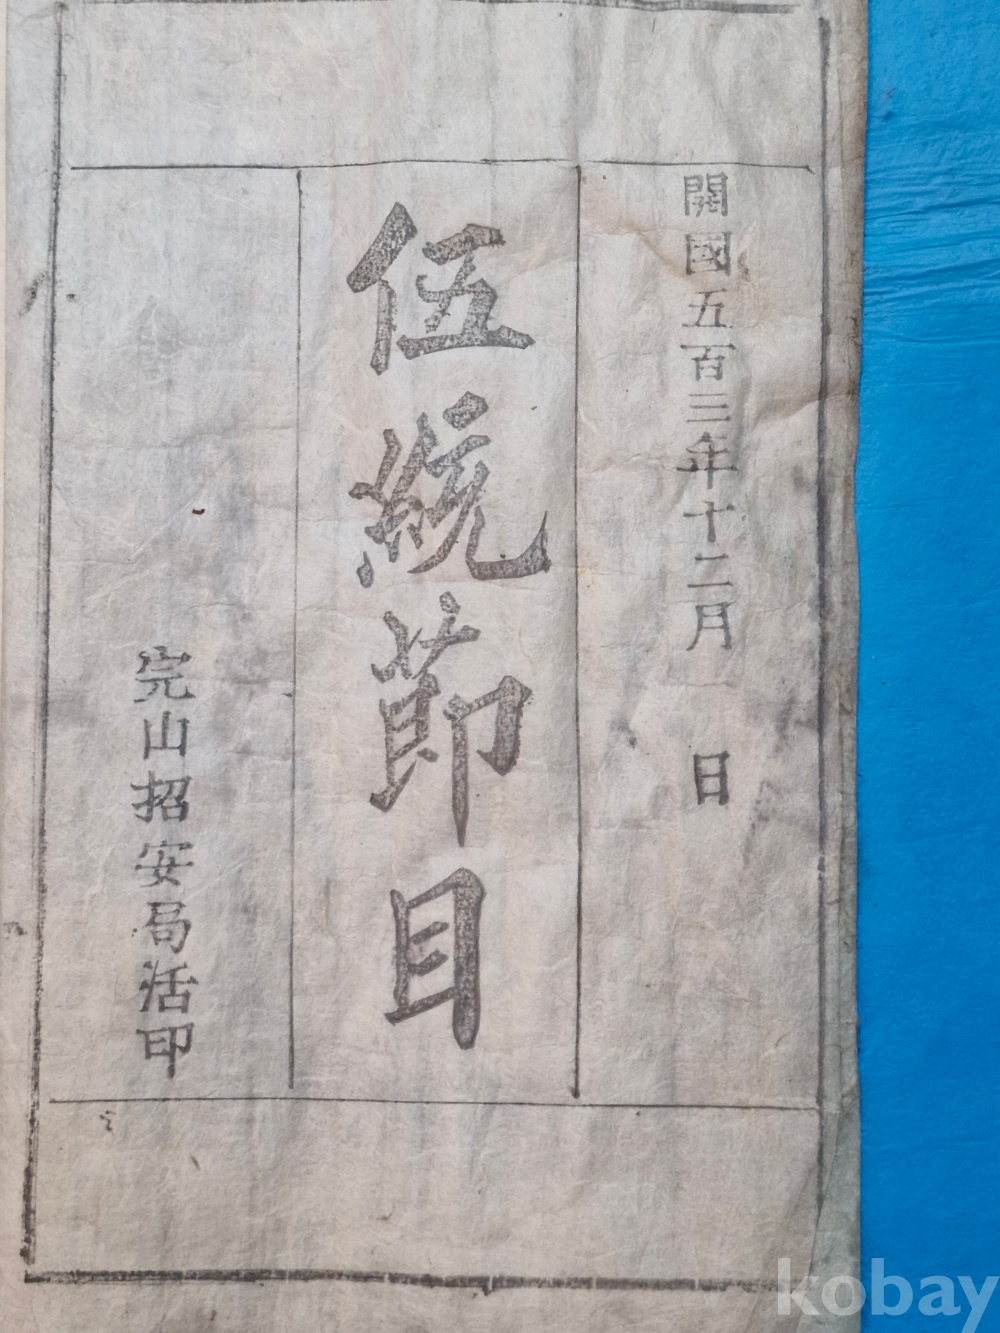 開國五百三年十二月 日
伍統節目
完山招安局活印
kobay